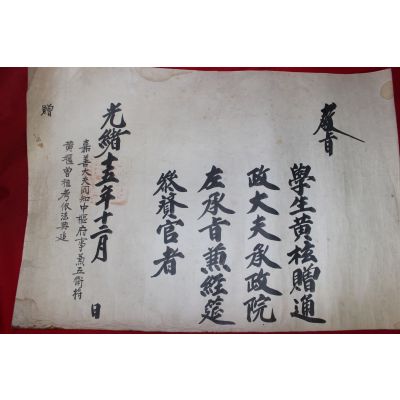 敎旨
學生黃柱贈通
政大夫承政院
左承旨兼經筵
叅贊官者
光緖十五年十二月 日
嘉善大夫同知中樞府事兼五衛將
黃 曾祖考依法典追
贈